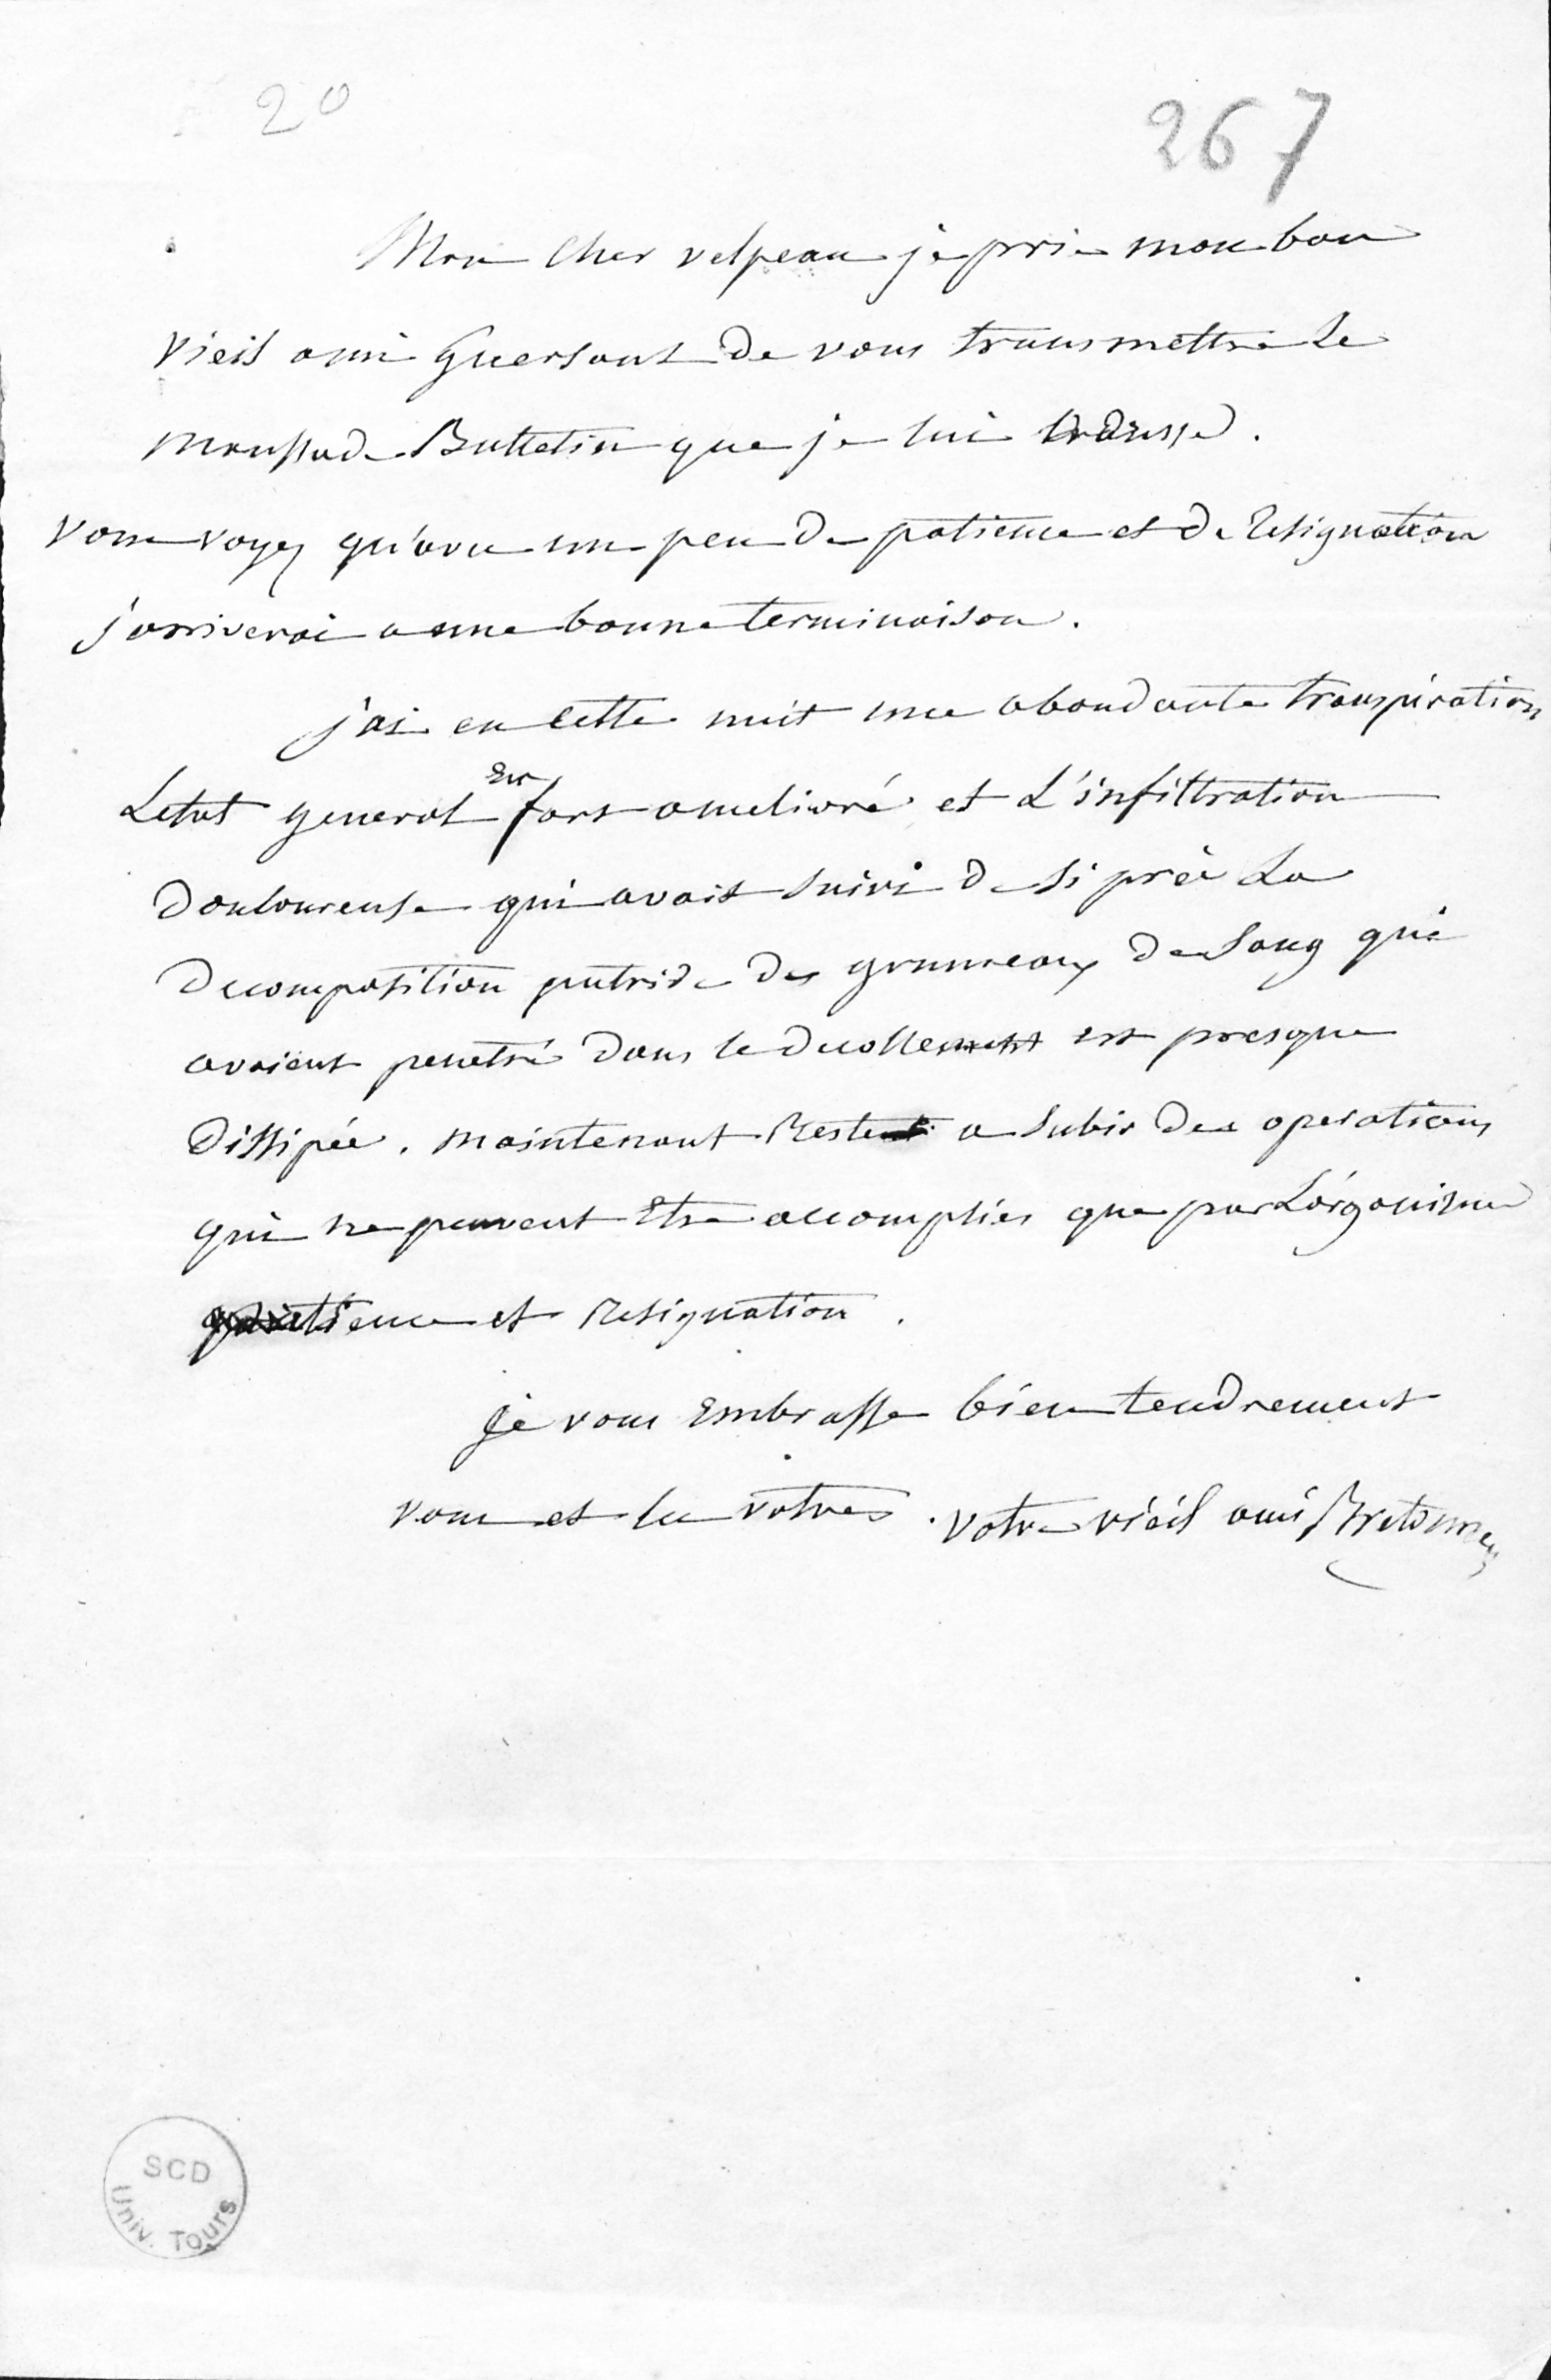 20
267
Mon Cher velpeau je prie mon bon
vieil ami Guersant de vous transmettre le
maussade Bulletin que je lui adresse.
vous voyez qu'avec un peu de patience et de resignation
j'arriverai a une bonne terminaison.
j'ai eu cette nuit une abondante transpiration
Letat general Est fort amelioré et L'infiltration
Douloureuse qui avait suivi de si près La
Decomposition putride des grumeaux de sang qui
avaient penetré dans le decollement est presque
Dissipée. maintenant Reste a subir des operations
qui ne peuvent Etre accomplies que par L'organisme
patience et Resignation.
je vous Embrasse bien tendrement
vous et les votres. votre vieil ami Bretonneau
SCD
Univ. Tours